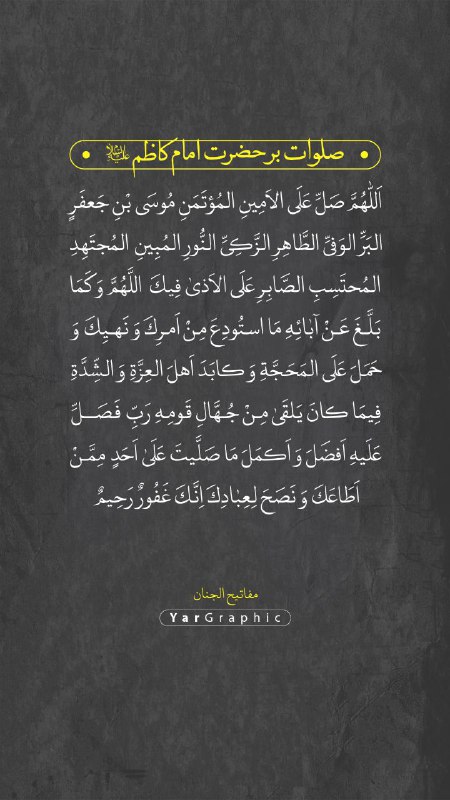 • صلوات بر حضرت امام کاظم علیه‌السلام •
اَللّٰهُمَّ صَلِّ عَلَی الاَمِینِ المُؤتَمَنِ مُوسَی بْنِ جَعفَرٍ
البَرِّ الوَفیِّ الطَّاهِرِ الزَّکِیِّ النُّورِ المُبِینِ المُجتَهِدِ
المُحتَسِبِ الصَّابِرِ عَلَی الاَذیٰ فِیكَ اللَّهُمَّ وَ کَمَا
بَلَّغَ عَنْ آبَائِهِ مَا استُودِعَ مِنْ اَمرِكَ وَ نَهیِكَ وَ
حَمَلَ عَلَی المَحَجَّةِ وَ کابَدَ اَهلَ العِزَّةِ وَ الشِّدَّةِ
فِیمَا کانَ یَلقَیٰ مِنْ جُهَّالِ قَومِهِ رَبِّ فَصَلِّ
عَلَیهِ اَفضَلَ وَ اَکمَلَ مَا صَلَّیتَ عَلَیٰ اَحَدٍ مِمَّنْ
اَطَاعَكَ وَ نَصَحَ لِعِبادِكَ اِنَّكَ غَفُورٌ رَحِیمٌ
مفاتیح الجنان
YarGraphic